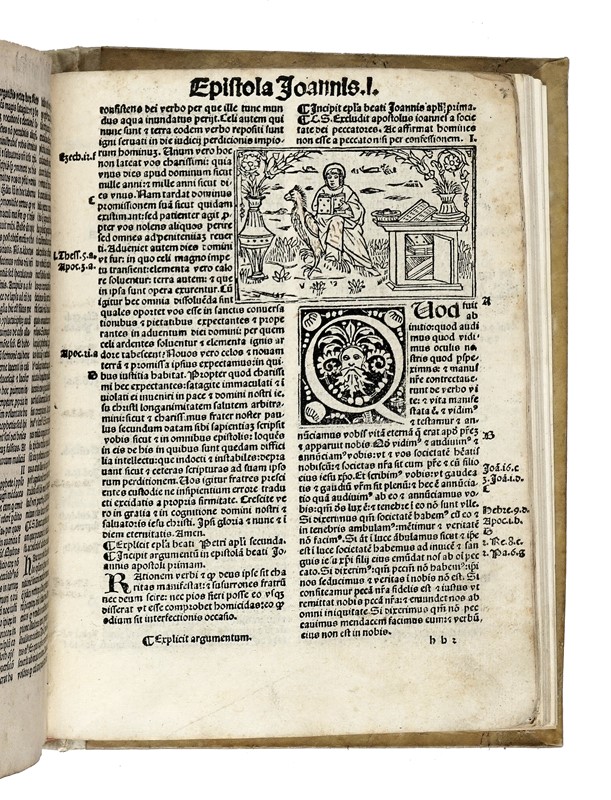 Epistola Joannis.I.
consistens dei verbo per que ille tunc mun
dus aqua inundatus perijt. Celi autem qui
nunc sunt ⁊ terra eodem verbo repositi sunt
igni seruati in die iudicij ⁊ perdicionis impio
rum hominuȝ. Unum vero hoc
non lateat vos charissimi: quia
vnus dies apud dominum sicut
mille anni: ⁊ mille anni sicut di-
es vnus. Nam tardat dominus
promissionem suā sicut quidam
existimant: sed patienter agit ꝓ-
pter vos nolens aliquos perire
sed omnes ad penitentiaȝ reuer
ti. Adueniet autem dies domini
vt fur: in quo celi magno impe
tu transient: elementa vero calo
re soluentur: terra autem: ⁊ que
in ipsa sunt opera exurentur. Cū
igitur hec omnia dissoluēda sint
quales oportet vos esse in sanctis conuersa
tionibus ⁊ pietatibus expectantes ⁊ prope
rantes in aduentum diei domini: per quem
celi ardentes soluentur ⁊ elementa ignis ar
dore tabescent? Nouos vero celos ⁊ nouam
terrā ⁊ promissa ipsius expectamus: in qui
bus iustitia habitat. Propter quod charissi
mi hec expectantes: satagite immaculati ⁊ i
uiolati ei inueniri in pace ⁊ domini nostri ie
su christi longanimitatem salutem arbitra-
mini: sicut ⁊ charissimus frater noster pau
lus secundum datam sibi sapientiaȝ scripsit
vobis sicut ⁊ in omnibus epistolis: loquēs
in eis de his in quibus sunt quedam diffici
lia intellectu: que indocti ⁊ instabiles deprau
uant sicut ⁊ ceteras scripturas ad suam ipso
rum perditionem. Uos igitur fratres presci
entes custodite ne insipientium errore tradu
cti excidatis a propria firmitate. Crescite ve
ro in gratia ⁊ in cognitione domini nostri ⁊
saluatoris iesu christi. Ipsi gloria ⁊ nunc ⁊ ī
diem eternitatis. Amen.
¶ Explicit epla beati Petri apli secunda
¶ Incipit argumentū in epistolā beati Jo-
annis apostoli primam.
RAtionem verbi ⁊ ꝙ deus ipse sit cha
ritas manifestat: ⁊ susurrones fratrū
nec deum scire: nec pios fieri posse eo vsqꝫ
disserat vt esse comprobet homicidas: eo ꝙ
odium sit interfectionis occasio.
¶ Explicit argumentum.
Ezech.
C
I.Thess.5.a
Apoc.3.a.
Apoc.
D
¶ Incipit epla beati Joannis apli prima.
¶ C.S. Excludit apostolus ioannes a socie
tate dei peccatores. Ac affirmat homines
non esse a peccato nisi per confessionem. I.
QUod fuit
ab
initio: quod audi
mus quod vidi-
mus oculis no
stris quod pspe-
ximus: ⁊ manus
nre contrectaue-
runt de verbo vi
te: ⁊ vita manife
stata ē. ⁊ vidimꝰ
⁊ testamur ⁊ an-
nūciamus vobis vitā eternā ꝙ erat apd prēȝ
⁊ apparuit nobis. Qd vidimꝰ ⁊ audiuimꝰ ⁊
annūciamꝰ vobis: vt ⁊ vos societatē hēatis
nobiscū: ⁊ societas nra sit cum pre: ⁊ cū filio
eius iesu xpo. Et scribimꝰ vobis: vt gaudea
tis ⁊ gaudiū vrm sit plenū: ⁊ hec ē annūcia
tio quā audiuimꝰ ab eo ⁊ annūciamus vo-
bis: qm deus lux ē: ⁊ tenebre ī eo nō sunt vlle.
Si dixerimus qm societatē habemꝰ cū eo ⁊
in tenebris ambulamꝰ: mētimur ⁊ veritatē
nō facimꝰ. Si āt ī luce ābulamus sicut ⁊ ipse
est ī luce societatē habemus ad inuicē ⁊ san
guis iesu xpi filij eius emūdat nos ab oī pec
cato. Si dixerimꝰ: qm pccm nō habemꝰ: ipsi
nos seducimus ⁊ veritas ī nobis nō est. Si
confiteamur peccā nra fidelis est ⁊ iustus vt
remittat nobis peccā nra: ⁊ emundet nos ab
omni iniquitate. Si dixerimus qm nō pec
cauimus mendacem facimus eum: ⁊ verbū
eius non est in nobis.
A
B
Joā.
3.Joā.I.d.
C
Hebre.9.d.
Apoc.I.b.
D
2.Re.8.e.
2.Pa.6.g
h b 2